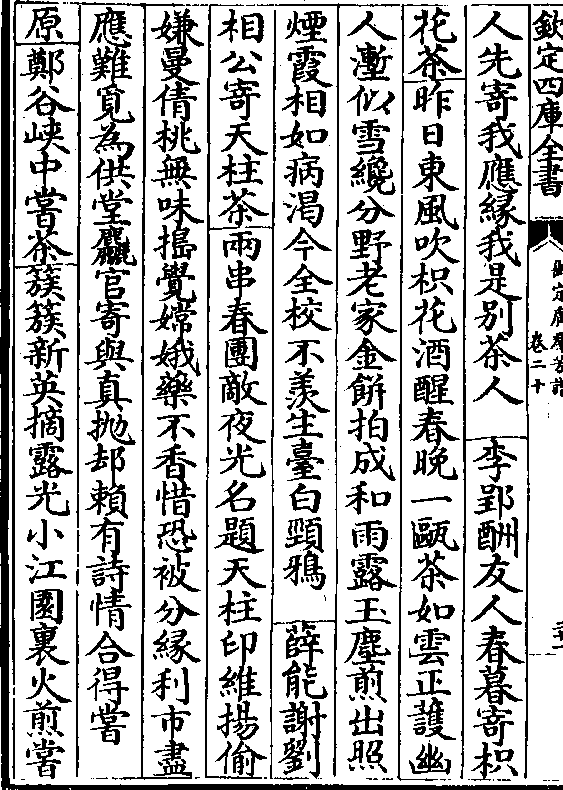 欽定四庫全書
卷二十
人先寄我應緣我是别茶人　李郢酬友人春暮寄枳
花茶昨日東風吹枳花酒醒春晚一甌茶如雲正護幽
人塹似雪纔分野老家金餅拍成和雨露玉塵煎出照
煙霞相如病渴今全校不羨生臺白頸鴉　薛能謝劉
相公寄天柱茶兩串春團敵夜光名題天柱印維揚偷
嫌曼倩桃無味搗覺嫦娥藥不香惜恐被分緣利市盡
應難覓為供堂麤官寄與真抛却賴有詩情合得嘗
原鄭谷峽中嘗茶簇簇新英摘露光小江園裏火煎嘗